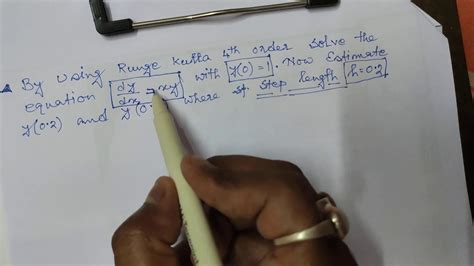 By Using Runge Kutta 4th order solve the
equation dy/dx = xy with y(0) = 1. Now Estimate
y(0.2) and y(0. where step length h = 0.2